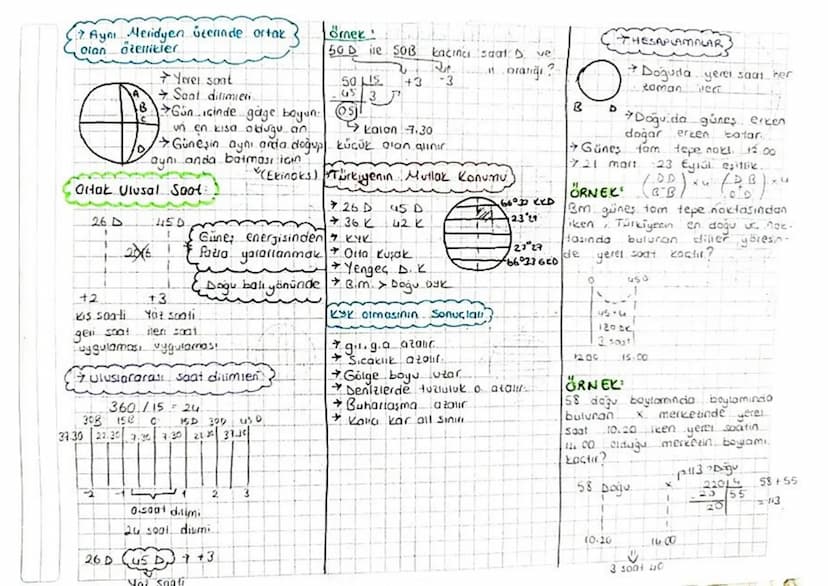 → Aynı Meridyen üzerinde ortak
olan özellikler
→ Yerel saat
→ Saat dilimleri
→ Gün içinde gölge boyun-
un en kısa olduğu an
→ Güneşin aynı anda doğup
aynı anda batması için
(Ekinoks)
A
B
C
D
Ortak Ulusal Saat:
26 D 45 D
Güneş enerjisinden
fazla yararlanmak
Doğu batı yönünde
+2 +3
kış saati Yaz saati
geri saat ileri saat
uygulaması uygulaması
→ Uluslararası saat dilimleri
360 / 15 = 24
30B 15B 0 15D 30D 45D
37.30 22.30 7.30 7.30 22.30 37.30
-2 -1 1 2 3
0.saat dilimi
24 saat dilimi
26 D 45 D → +3
Yaz saati
Örnek:
50D ile 50B kaçıncı saat D. ve
+3 -3
50 15
- 45 3
05
→ kalan 7.30
küçük olan alınır.
Türkiyenin Mutlak Konumu
→ 26 D 45 D
→ 36 K 42 K
→ KYK
→ Orta Kuşak
→ Yengeç D. K
→ B.m. > Doğu
66°33 KKD
23°27
23°27
66°33 GKD
KYK olmasının Sonuçları
→ g.ı.g.a azalır.
→ Sıcaklık azalır
→ Gölge boyu uzar
→ Denizlerde tuzluluk o. azalır.
→ Buharlaşma azalır
→ Kalıcı kar alt sınırı
→ HESAPLAMALAR
B D
→ Doğuda yerel saat her
zaman ileri
→ Doğuda güneş erken
doğar erken batar.
→ Güneş tam tepe nokt. 12.00
→ 21 mart 23 Eylül eşitlik.
(D-D B-B) x 4 (D B) x 4
ÖRNEK:
B.m güneş tam tepe noktasından
iken, Türkiyenin en doğu uç nok-
tasında bulunan diller yöresin-
de yerel saat kaçtır?
0 45D
45 x 4
180 DK
3 saat
12.00 15.00
ÖRNEK:
58 doğu boylamında boylamında
bulunan x merkezinde yerel
saat 10.20 iken yerel saatin
14.00 olduğu merkezin boylamı
kaçtır?
113 Doğu
58 Doğu x
220 4
- 20 55
20
58 + 55
= 113
10.20 14.00
3 saat 40